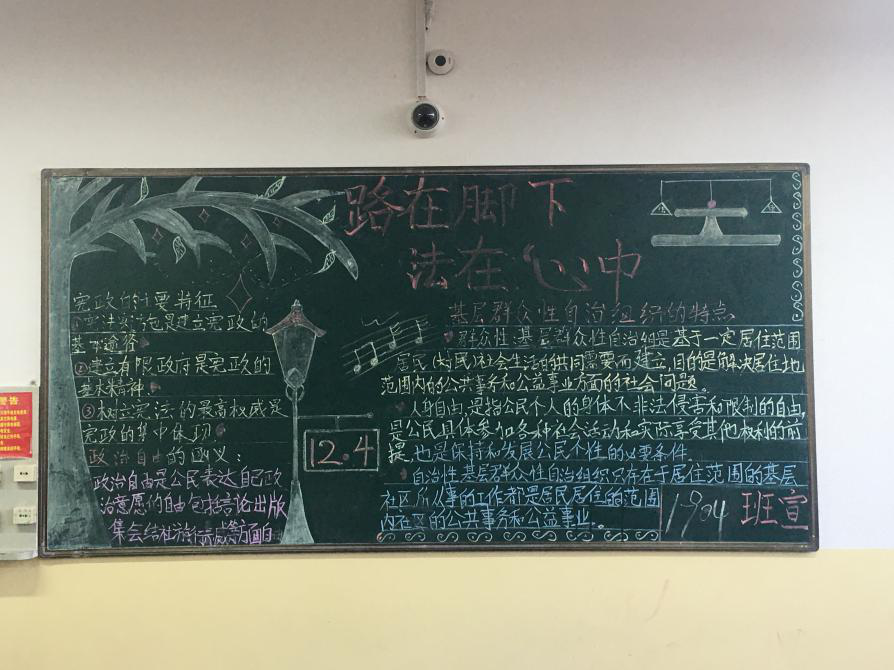 路在脚下
法在心中
宪政的主要特征
①宪法实施是建立宪政的
基本途径
②建立有限政府是宪政的
基本精神、
③树立宪法的最高权威是
宪政的集中体现
政治自由的涵义：
政治自由是公民表达自己政
治意愿的自由包括言论出版
集会结社游行示威等方面的
12.4
基层群众性自治组织的特点
群众性:基层群众性自治组是基于一定居住范围
居民(村民)社会生活的共同需要而建立,目的是解决居住地
范围内的公共事务和公益事业方面的社会问题。
人身自由,是指公民个人的身体不非法侵害和限制的自由,
是公民具体参加各种社会活动和实际享受其他权利的前
提,也是保持和发展公民个性的必要条件.
自治性基层群众性自治组织只存在于居住范围的基层
社区所从事的工作都是居民居住的范围
内社区的公共事务和公益事业。
1904 班宣
警告